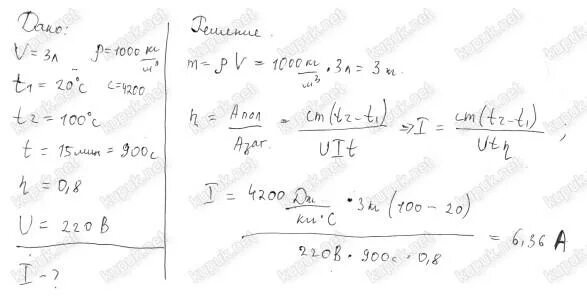 Дано:
V = 3л ρ=1000 кг/м³
t₁ = 20°c c=4200
t₂ = 100°c
t = 15мин = 900с
η = 0,8
U = 220В
I - ?
Решение.
m = ρV = 1000 кг/м³ · 3л = 3 кг.
η = Aпол/Aзат. = cm(t₂-t₁)/UIt ⇒ I = cm(t₂-t₁)/Utη ;
I = 4200 Дж/кг·°С · 3кг (100-20) / 220В · 900с · 0,8 = 6,36 А